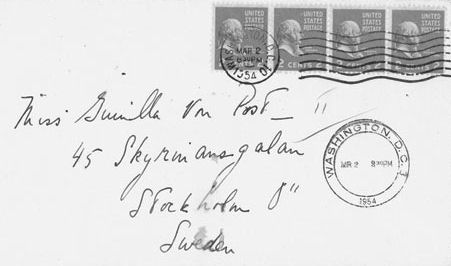 UNITED STATES POSTAGE UNITED STATES POSTAGE UNITED STATES POSTAGE UNITED STATES POSTAGE
2 CENTS 2 2 CENTS 2 2 CENTS 2 2 CENTS 2
WASHINGTON, D.C.
MAR 2
1954
Miss Gunilla Von Post
45 Skyrinansgatan
Stockholm Ö"
Sweden
WASHINGTON, D.C. 1
MR 2 8 30 PM
1954